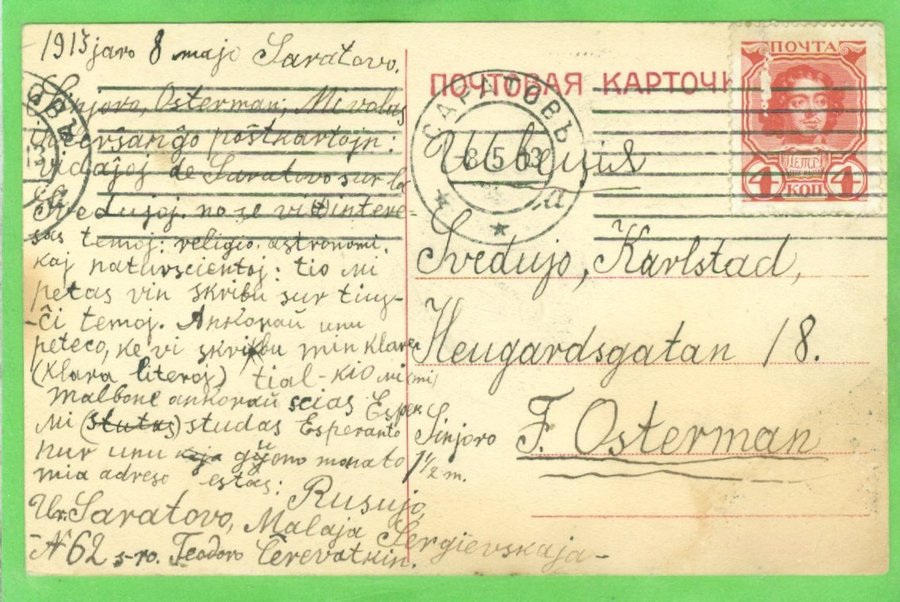 1913 jaro 8 majo Saratovo.
Sinjoro, Osterman, Mi volas
interŝanĝo poŝtkartojn:
vidaĵoj de Saratovo sur la
Svedujoj. no se vi intere-
sas temoj: religio, astronomi.
kaj naturscientoj: tio mi
petas vin skribu sur tiuj-
-ĉi temoj. Ankoraŭ unu
peteco, ke vi skribu min klare
(klara literoj) tial-kio mi (mi)
malbone ankoraŭ scias Esper
Mi (stutas) studas Esperanto
nur unu kaj monato
1½ m.
mia adreso estas: Rusujo,
Ur. Saratovo, Malaja Sergievskaja-
N 62 s-ro. Teodoro Ĉerevatkin.
ПОЧТОВАЯ КАРТОЧК
ПОЧТА
4 КОП 4
САРАТОВЪ
8 5 13
Швеция
Svedujo, Karlstad,
Heugardsgatan 18.
Sinjoro F. Osterman